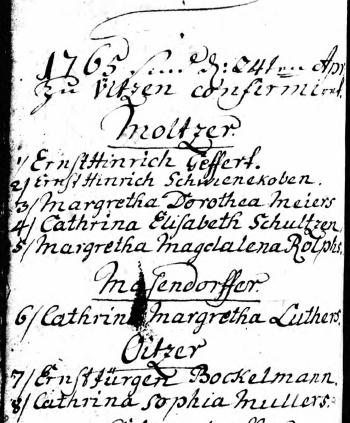 1765 sind d: 24ten Apr
zu Vitzen confirmiret.
Moltzer
1/ Ernst Hinrich Geffert.
2/ Ernst Hinrich Schwenekoben.
3/ Margretha Dorothea Meiers
4/ Cathrina Elisabeth Schultzen
5/ Margretha Magdalena Rolphs.
Masendorffer
6/ Cathrin Margretha Luthers.
Oitzer
7/ Ernst Jürgen Bockelmann.
8/ Cathrina Sophia Mullers.